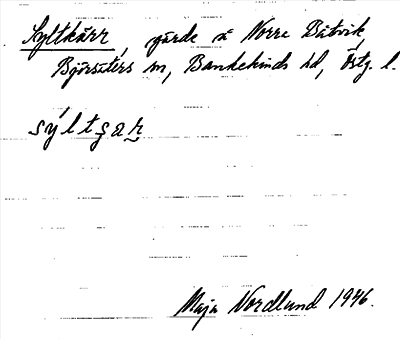 Syltkärr, gärde å Norre Båtvik,
Björsäters sn, Bankekinds hd, Östg. l.
sýltʂaṛ
Maja Nordlund 1946.